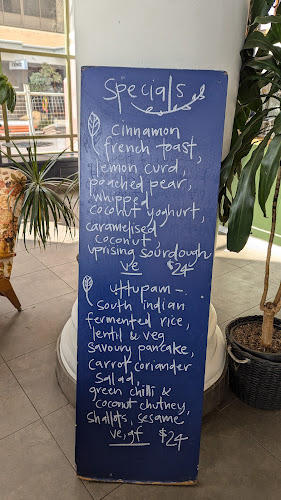 Specials
cinnamon
french toast,
lemon curd,
poached pear,
whipped
coconut yoghurt,
caramelised
coconut,
uprising sourdough
ve $24
uttupam –
south indian
fermented rice,
lentil & veg
savoury pancake,
carrot coriander
salad,
green chilli &
coconut chutney,
shallots, sesame
ve, gf $24